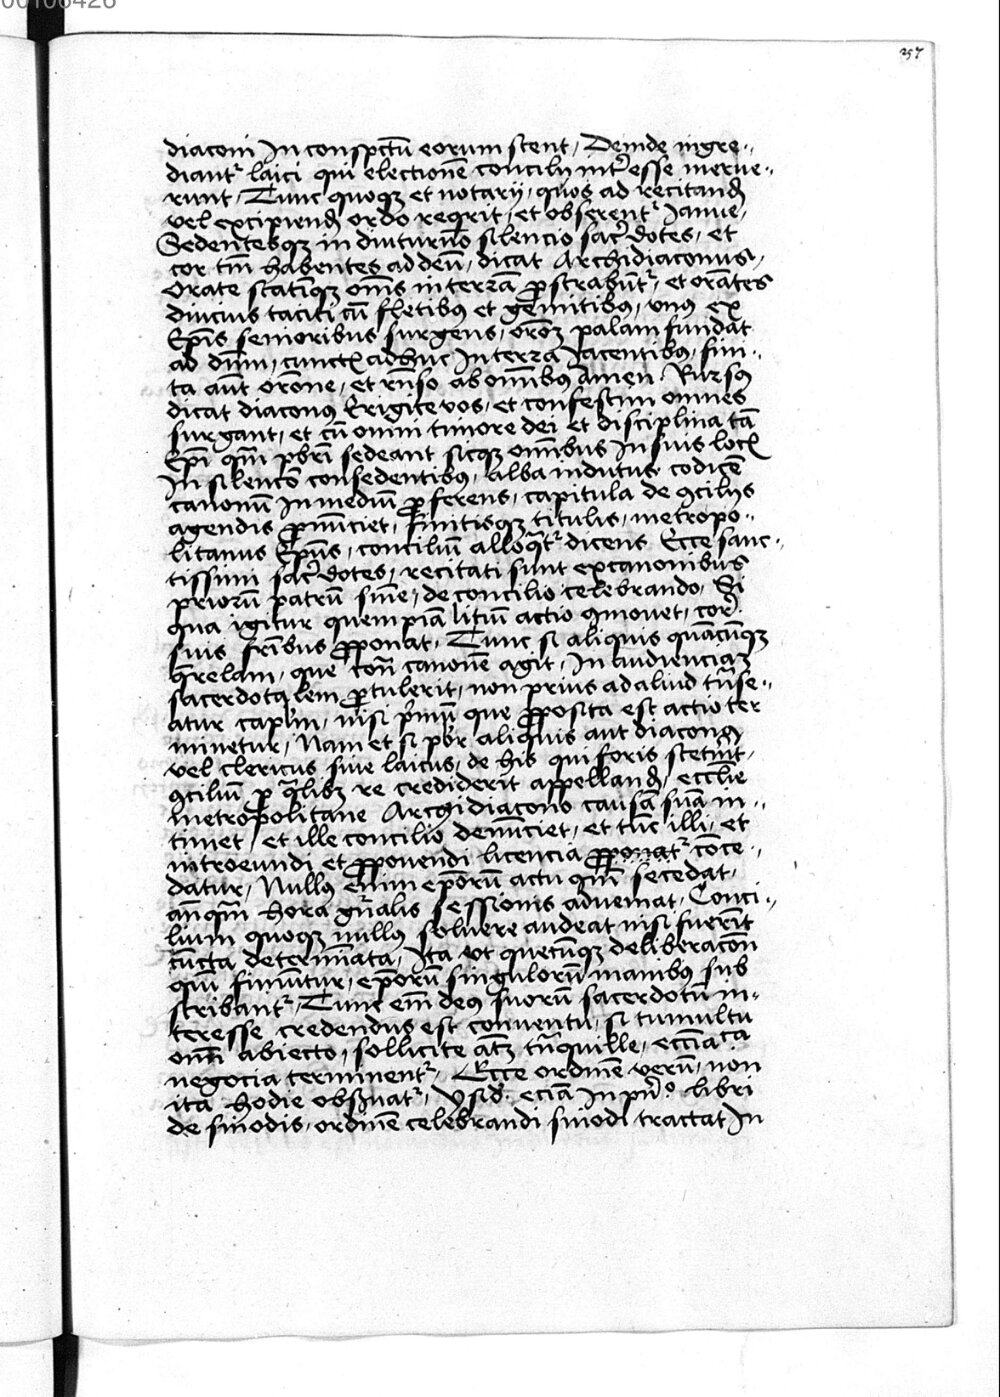 00106426
257
diaconi In conspctū eorum stent / Deinde ingre..
diant᷑ laici qui electionē concilij int᷑esse merue..
runt / Tunc quoqꝫ et notarij, quos ad recitand̄
vel excipiend̄ ordo reqrit / et obserent᷑ Ianue /
Sedentesqꝫ in diuturno silencio sac᷑dotes, et
cor tm̄ habentes ad deū, dicat Archidiaconus,
Orate statiqꝫ om̄s in terrā ꝓstrabūt᷑, et orātes
diucius taciti cū fletibꝰ et gemitibꝰ, vnꝰ ex
Ep̄is senioribus surgens, orōꝫ palam fundat
ad dn̄m, cunctꝭ adhuc In terra Iacentibꝰ, fini..
ta aūt orōne, et rn̄so ab om̄ibꝰ Amen. Rursꝰ
dicat diaconꝰ Erigite vos, et confestim omnes
surgant, et cū omni timore dei et disciplina tā
Ep̄i qm̄ p̄bri sedeant sicqꝫ om̄ibus In suis locꝭ
In silencō consedentibꝰ, Alba indutus codicē
canonū In mediū ꝓferens, capitula de ꝯcilijs
agendis ꝓnūciet, finitisqꝫ titulis, metropo..
litanus Ep̄us, conciliū alloq̄t᷑ dicens Ecce sanc..
tissimi sac᷑dotes, recitati sunt ex canonibus
priorū patrū sn̄ie, de concilio celebrando, Si
qua igitur quempiā vestrū actio ꝯmouet, cor̄
suis fr̄ibus ꝓponat, Tunc si aliquis quācūqꝫ
q̄relam, que cōn̄ canonē agit, In audienciaꝫ
sacerdotalem ꝓtulerit, non prius ad aliud tn̄se..
atur caplm̄, nisi p̄mū que ꝓposita est actio ter
minetur, Nam et si p̄br aliquis aut diaconꝰ
vel clericus siue laicus, de his qui foris stetīnt,
ꝯciliū ꝓ q̄libꝫ re crediderit appelland̄, ecclīe
metropolitane Archidiacono causā suā in..
timet, et ille concilio denūciet, et tūc illi, et
introeundi et ꝓponendi licencia cōce..
datur, Nullꝰ enim ep̄orū actu qm̄ secedat,
an̄qm̄ hora gn̄alis sessionis adueniat, Conci..
lium quoqꝫ nullꝰ soluere audeat nisi fuerīt
cūcta determīata, Ita vt quecūqꝫ deliberacōn̄
qm̄ finiūtur, ep̄orū singulorū manibꝰ sub
scribant᷑, Tunc em̄ deꝰ suorū sacerdotū in..
teresse credendus est conuentu, si tumultu
omn̄ abiecto, sollicite atqꝫ tn̄quille, ecc̄iaca
negocia terminent᷑, Ecce ordinē verū, non
ita hodie obs̄uat᷑, ysid. eciā In pn̄º libri
de sinodis, ordinē celebrandi sinodi tractat In